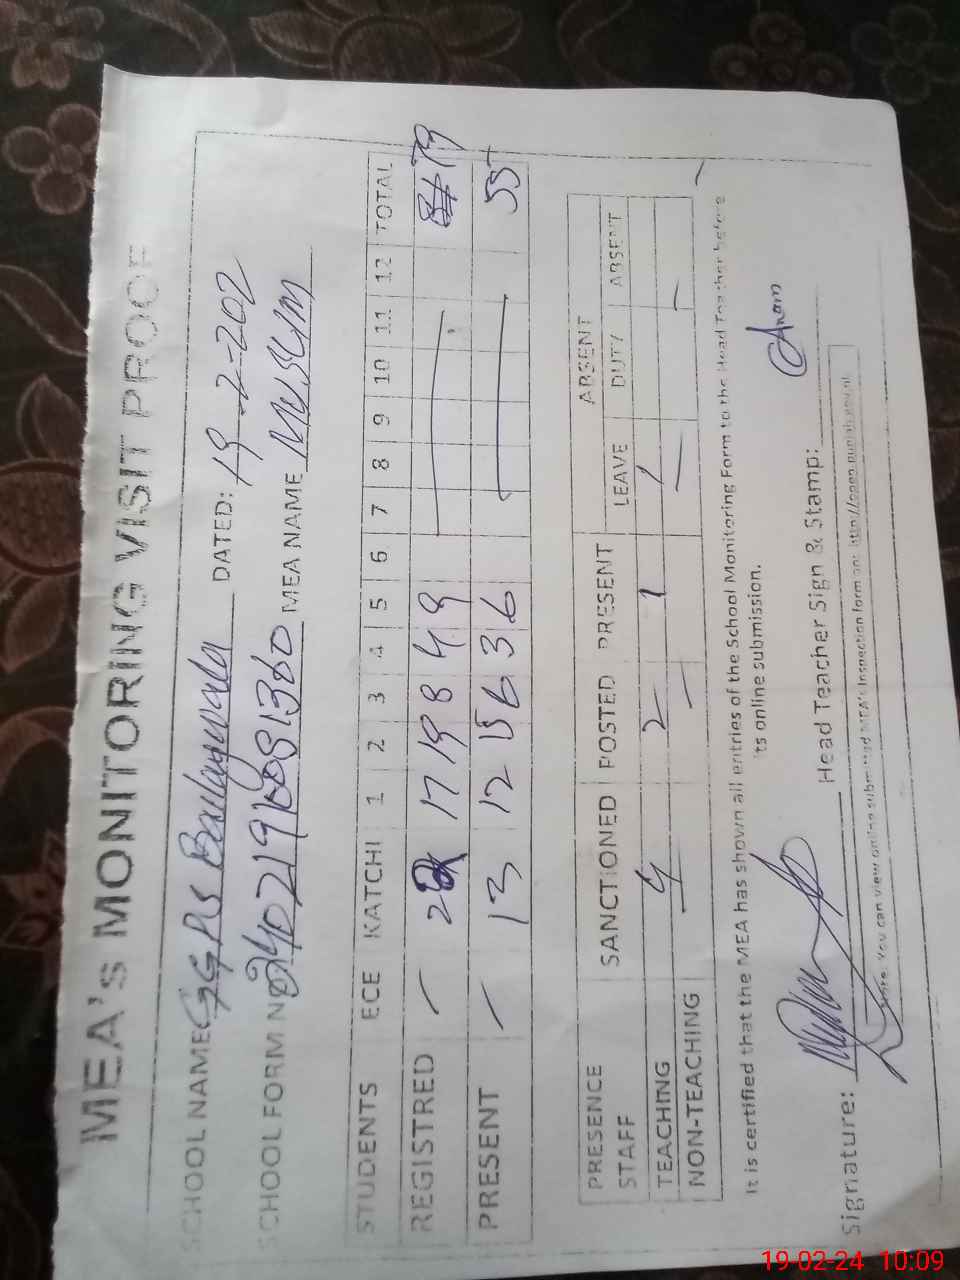 MEA's MONITORING VISIT PROOF
SCHOOL NAME GGPS DATED: 19-2-202
SCHOOL FORM N MEA NAME
STUDENTS ECE KATCHI 1 2 3 4 5 6 7 8 9 10 11 12 TOTAL
REGISTRED — 17 19 8 4 9 79
PRESENT — 13 12 15 6 3 6 55
ABSENT
PRESENCE SANCTIONED POSTED PRESENT
STAFF LEAVE DUTY ABSENT
TEACHING 4 2 1 1
NON-TEACHING — — — —
It is certified that the MEA has shown all entries of the School Monitoring Form to the Head Teacher before
its online submission.
Anam
Signature: Head Teacher Sign & Stamp:
Note: You can view online submitted MEA's Inspection form on: http://open.punjab.gov.pk
19-02-24 10:09